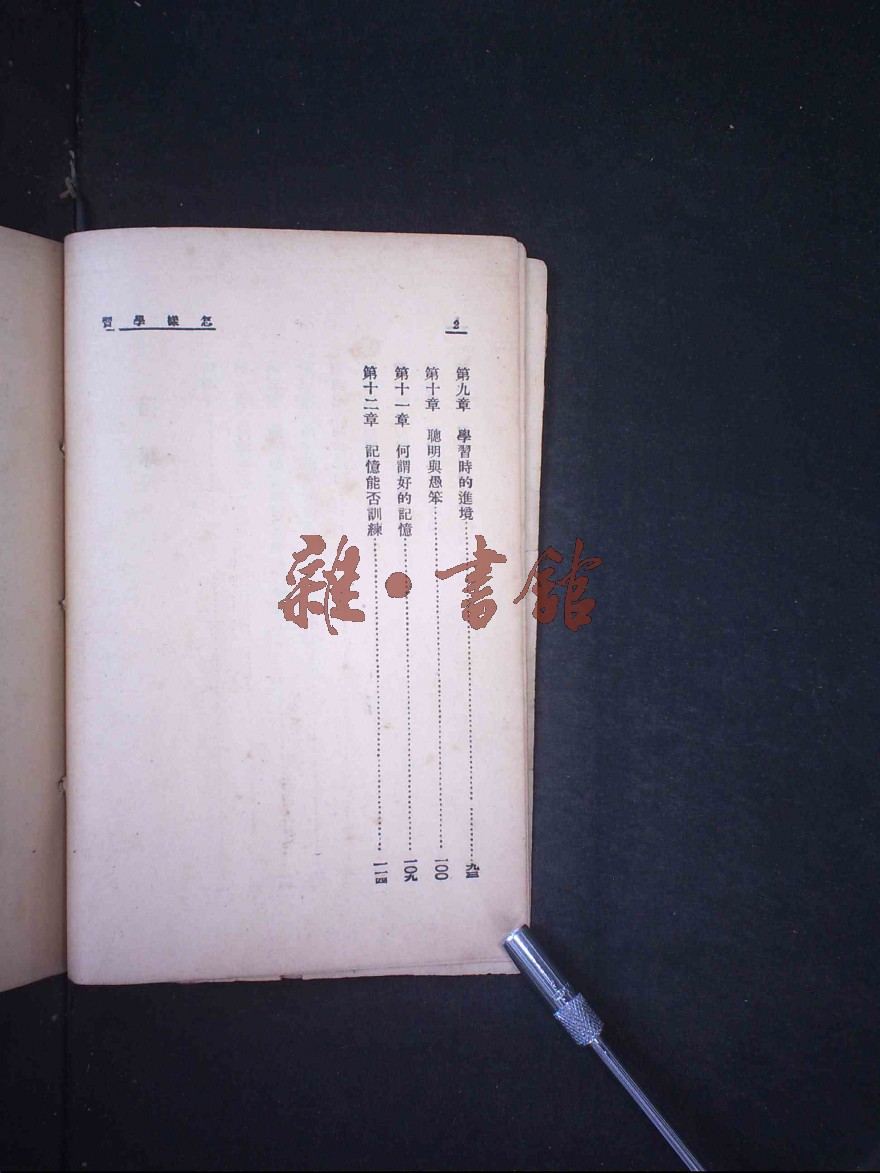 怎樣學習
2
第九章 學習時的進境……九三
第十章 聰明與愚笨……一〇〇
第十一章 何謂好的記憶……一〇九
第十二章 記憶能否訓練……一一四
雜·書館